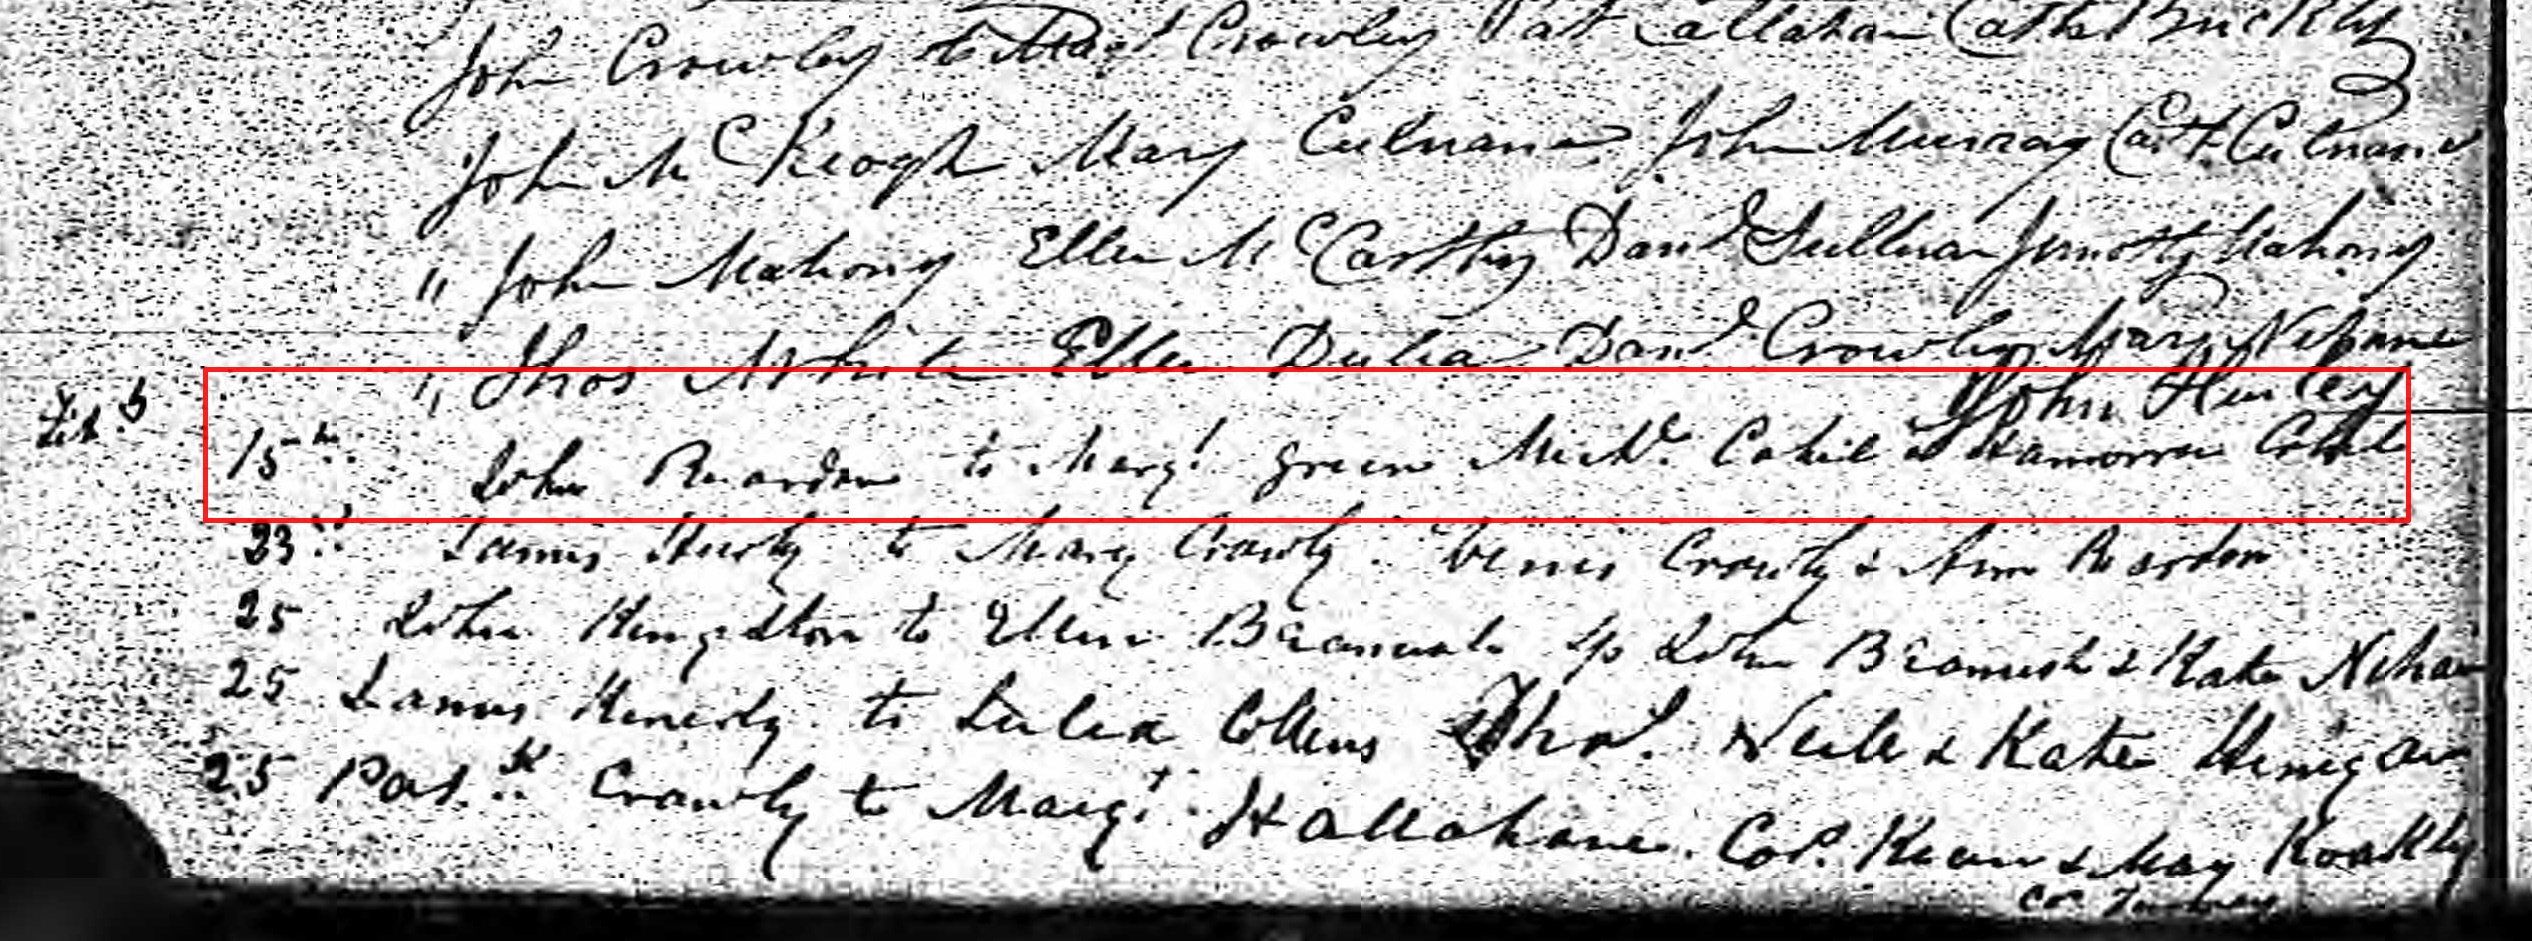 John Crowley to Margt Crowley Pat Callahan Cath Buckly
John Mc Keogh Mary Culnane John Murray Cath Culnane
" John Mahony Ellen Mc Carthy Danl Sullivan Timothy Mahony
" Thos White Ellen Dulea Danl Crowley Mary Nehane
John Hurley
Feb. 15th John Reardon to Margt Green Michl Cahil &
23rd James Hurly to Mary Crowly Denis Crowly & Ann Reardon
25 John Kingston to Ellen Beamish Sp John Beamish & Kate Nihan
25 James Kenedy to Julia Collins Thos. Neile & Kate Hinigan
25 Patk Crowly to Margt Hallahane. Cor. & May Koakly
Cor.